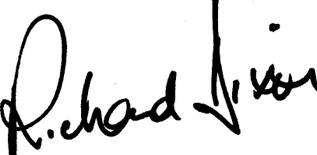 Richard Dixon